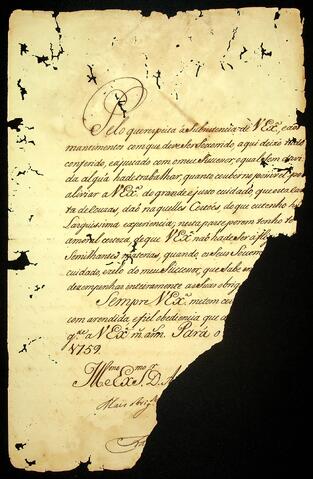 Pelo que respeita á Subsistencia de V Exª, e aos
mantimentos com que deve ser Soccorrido, aqui deixo tudo
conferido, e ajustado com o meu Sucessor, o qual sem duvi
da algũa hade trabalhar, quanto couber no possivel, p
aliviar a V Exª do grande, e justo cuidado, que esta
ta de Couzas, dá naquelles Certões de que eu tenho h
Larguissima experiencia; nesta prte porem tenho to
a moral certeza de que V Exª naõ hade ser afli
Semilhantes materias, quando, o seu Socem
cuidado, e zelo do meu Sucessor, que sabe
dezempenhar inteiramente as suas obrig
Sempre V Exª me tem
com a rendida, e fiel obediencia que
gde a V Exª m. ann. Pará o
1759
Illmo e Exmo Sr. D. A
Mais obrig